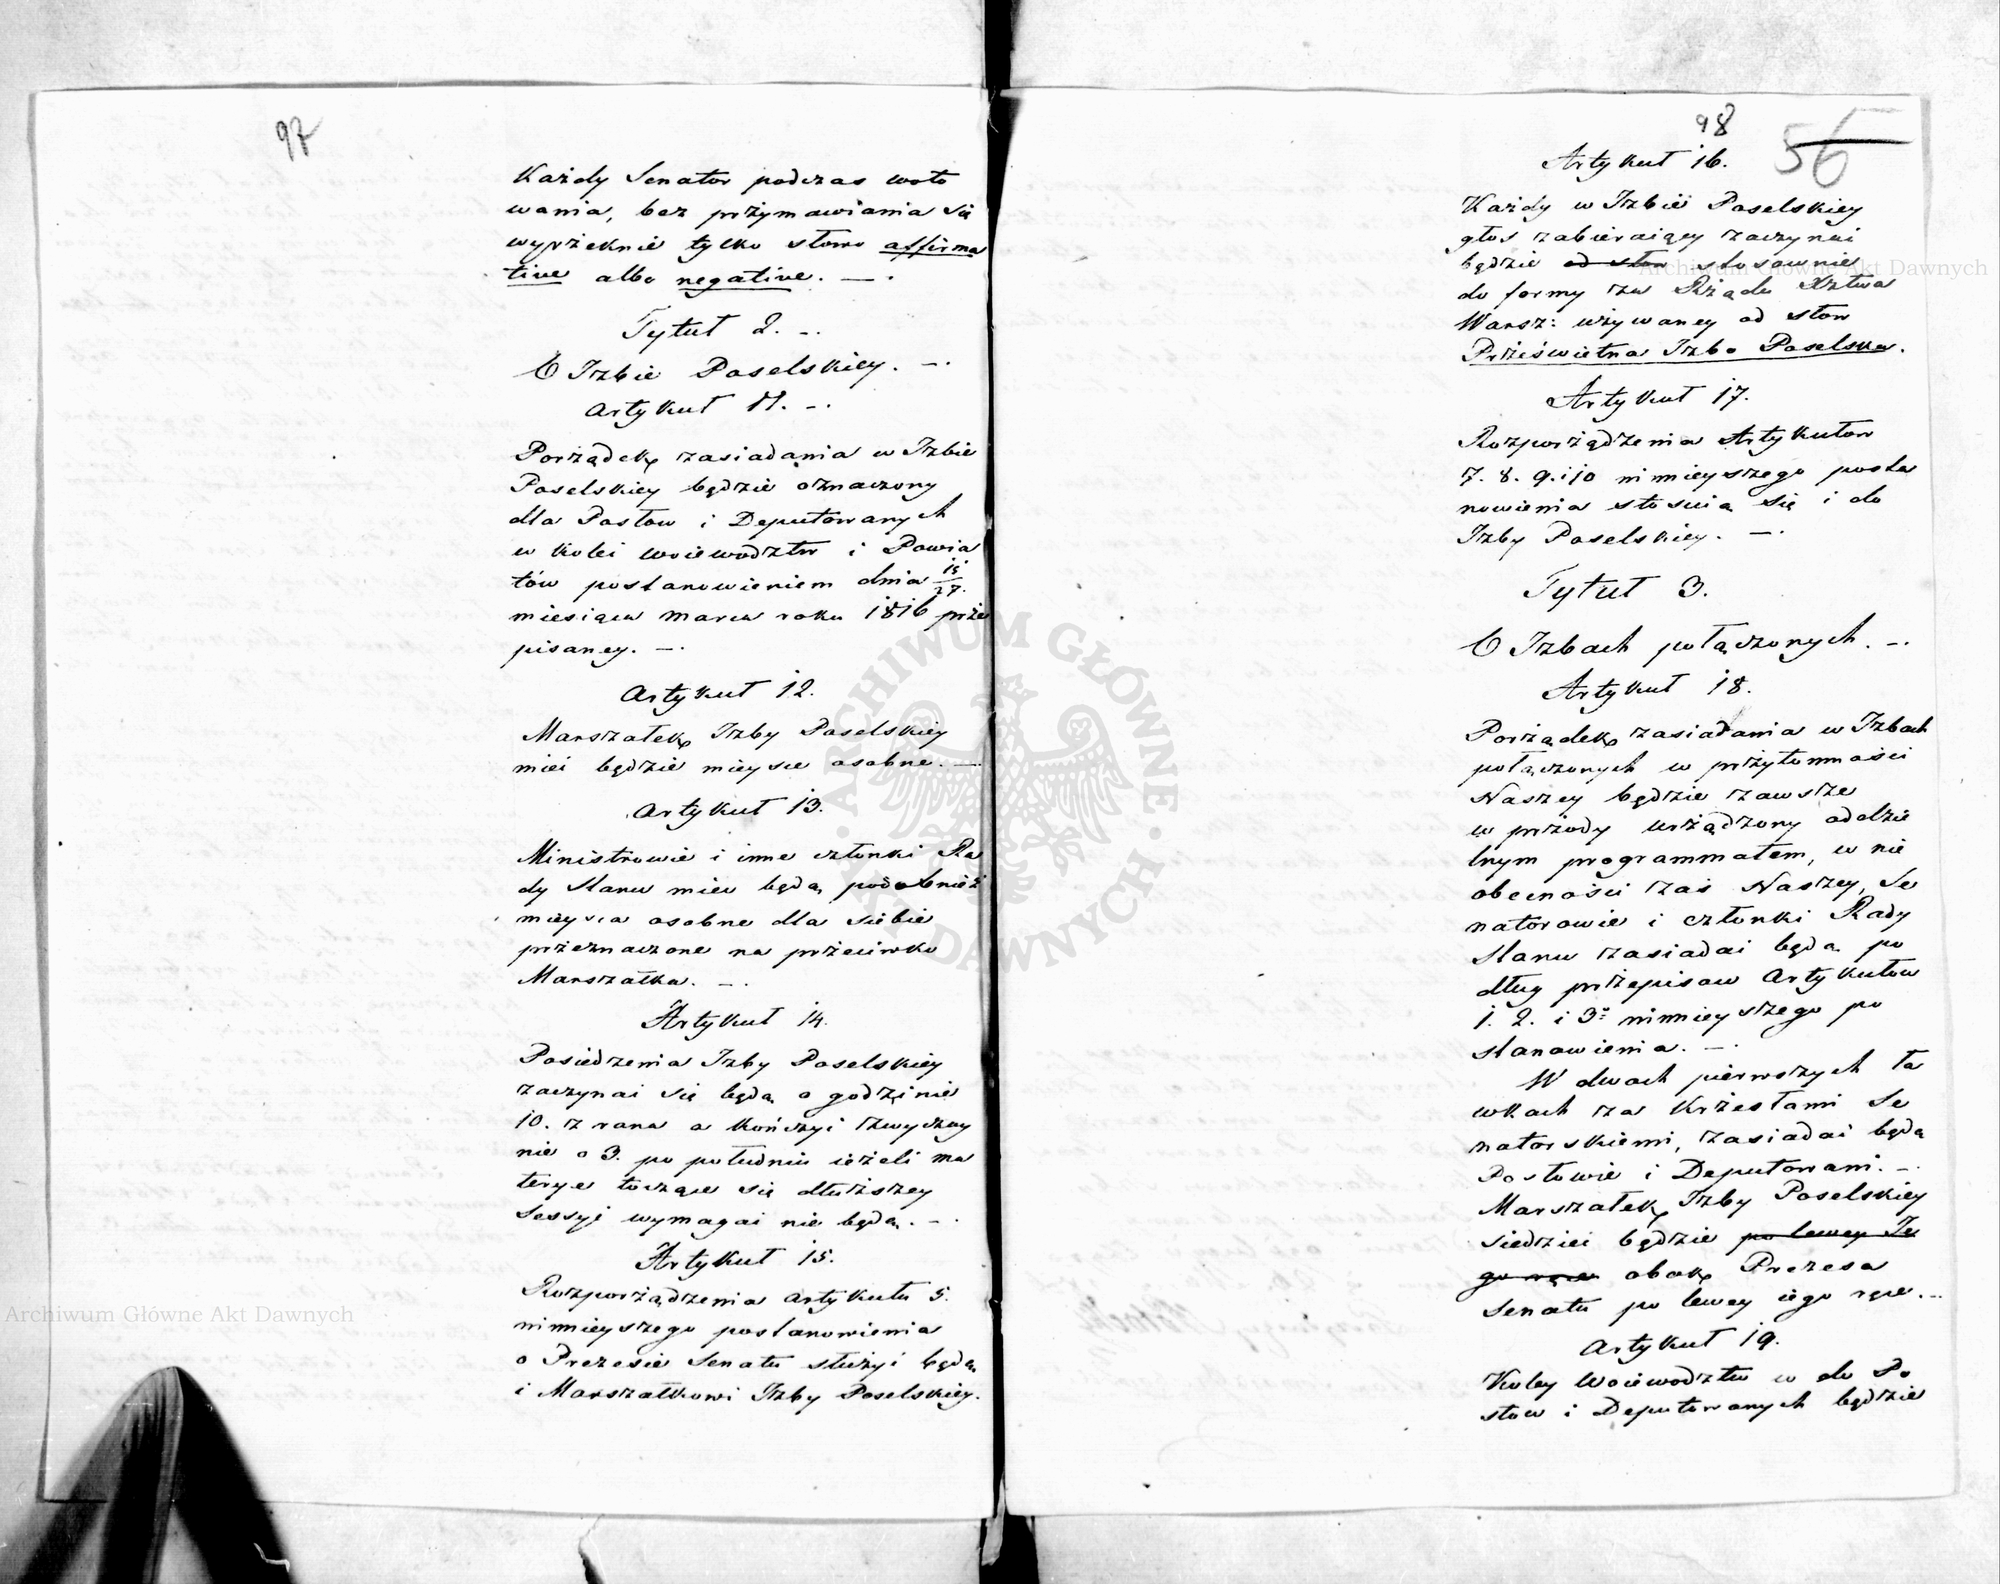 97
Każdy Senator podczas woto
wania, bez przymawiania się
wyrzeknie tylko słowo affirma
tive albo negative. —.
Tytuł 2. —.
O Izbie Poselskiey. —.
Artykuł 11. —.
Porządek zasiadania w Izbie
Poselskiey będzie oznaczony
dla Posłow i Deputowanych
w kolei woiewodztw i Powia
tów postanowieniem dnia 15/27.
miesiąca marca roku 1816 prze
pisaney. —.
Artykuł 12.
Marszałek Izby Poselskiey
mieć będzie mieysce osobne. —
Artykuł 13.
Ministrowie i inne członki Ra
dy Stanu mieć będą podobnież
mieysca osobne dla siebie
przeznaczone na przeciwko
Marszałka. —.
Artykuł 14.
Posiedzenia Izby Poselskiey
zaczynać się będą o godzinie
10. z rana a kończyć zwyczay
nie o 3. po południu ieżeli ma
terye toczące się dłuższey
Sessyi wymagać nie będą. —.
Artykuł 15.
Rozporządzenia artykułu 5.
ninieyszego postanowienia
o Prezesie Senatu służyć będą
i Marszałkowi Izby Poselskiey.
98
56
Artykuł 16.
Każdy w Izbie Poselskiey
głos zabieraiący zaczynać
będzie od słow stosownie
do formy za Rządu Xztwa
Warsz: używaney od słow
Prześwietna Izbo Poselska.
Artykuł 17.
Rozporządzenia Artykułow
7. 8. 9. i 10 ninieyszego posta
nowienia stosuią się i do
Izby Poselskiey. —.
Tytuł 3.
O Izbach połączonych. —.
Artykuł 18.
Porządek zasiadania w Izbach
połączonych w przytomności
Naszey będzie zawsze
w przody urządzony oddzie
lnym programmatem, w nie
obecności zaś Naszey, Se
natorowie i członki Rady
Stanu zasiadać będą po
dług przepisow Artykułow
1. 2. i 3º ninieyszego po
stanowienia. —.
W dwoch pierwszych ła
wkach za krzesłami Se
natorskiemi, zasiadać będą
Posłowie i Deputowani. —.
Marszałek Izby Poselskiey
siedzieć będzie po lewey Je
go ręce obok Prezesa
Senatu po lewey iego ręce. —
Artykuł 19.
Koley Woiewodztw co do Po
słow i Deputowanych będzie
Archiwum Główne Akt Dawnych
Archiwum Główne Akt Dawnych
ARCHIWUM GŁÓWNE AKT DAWNYCH